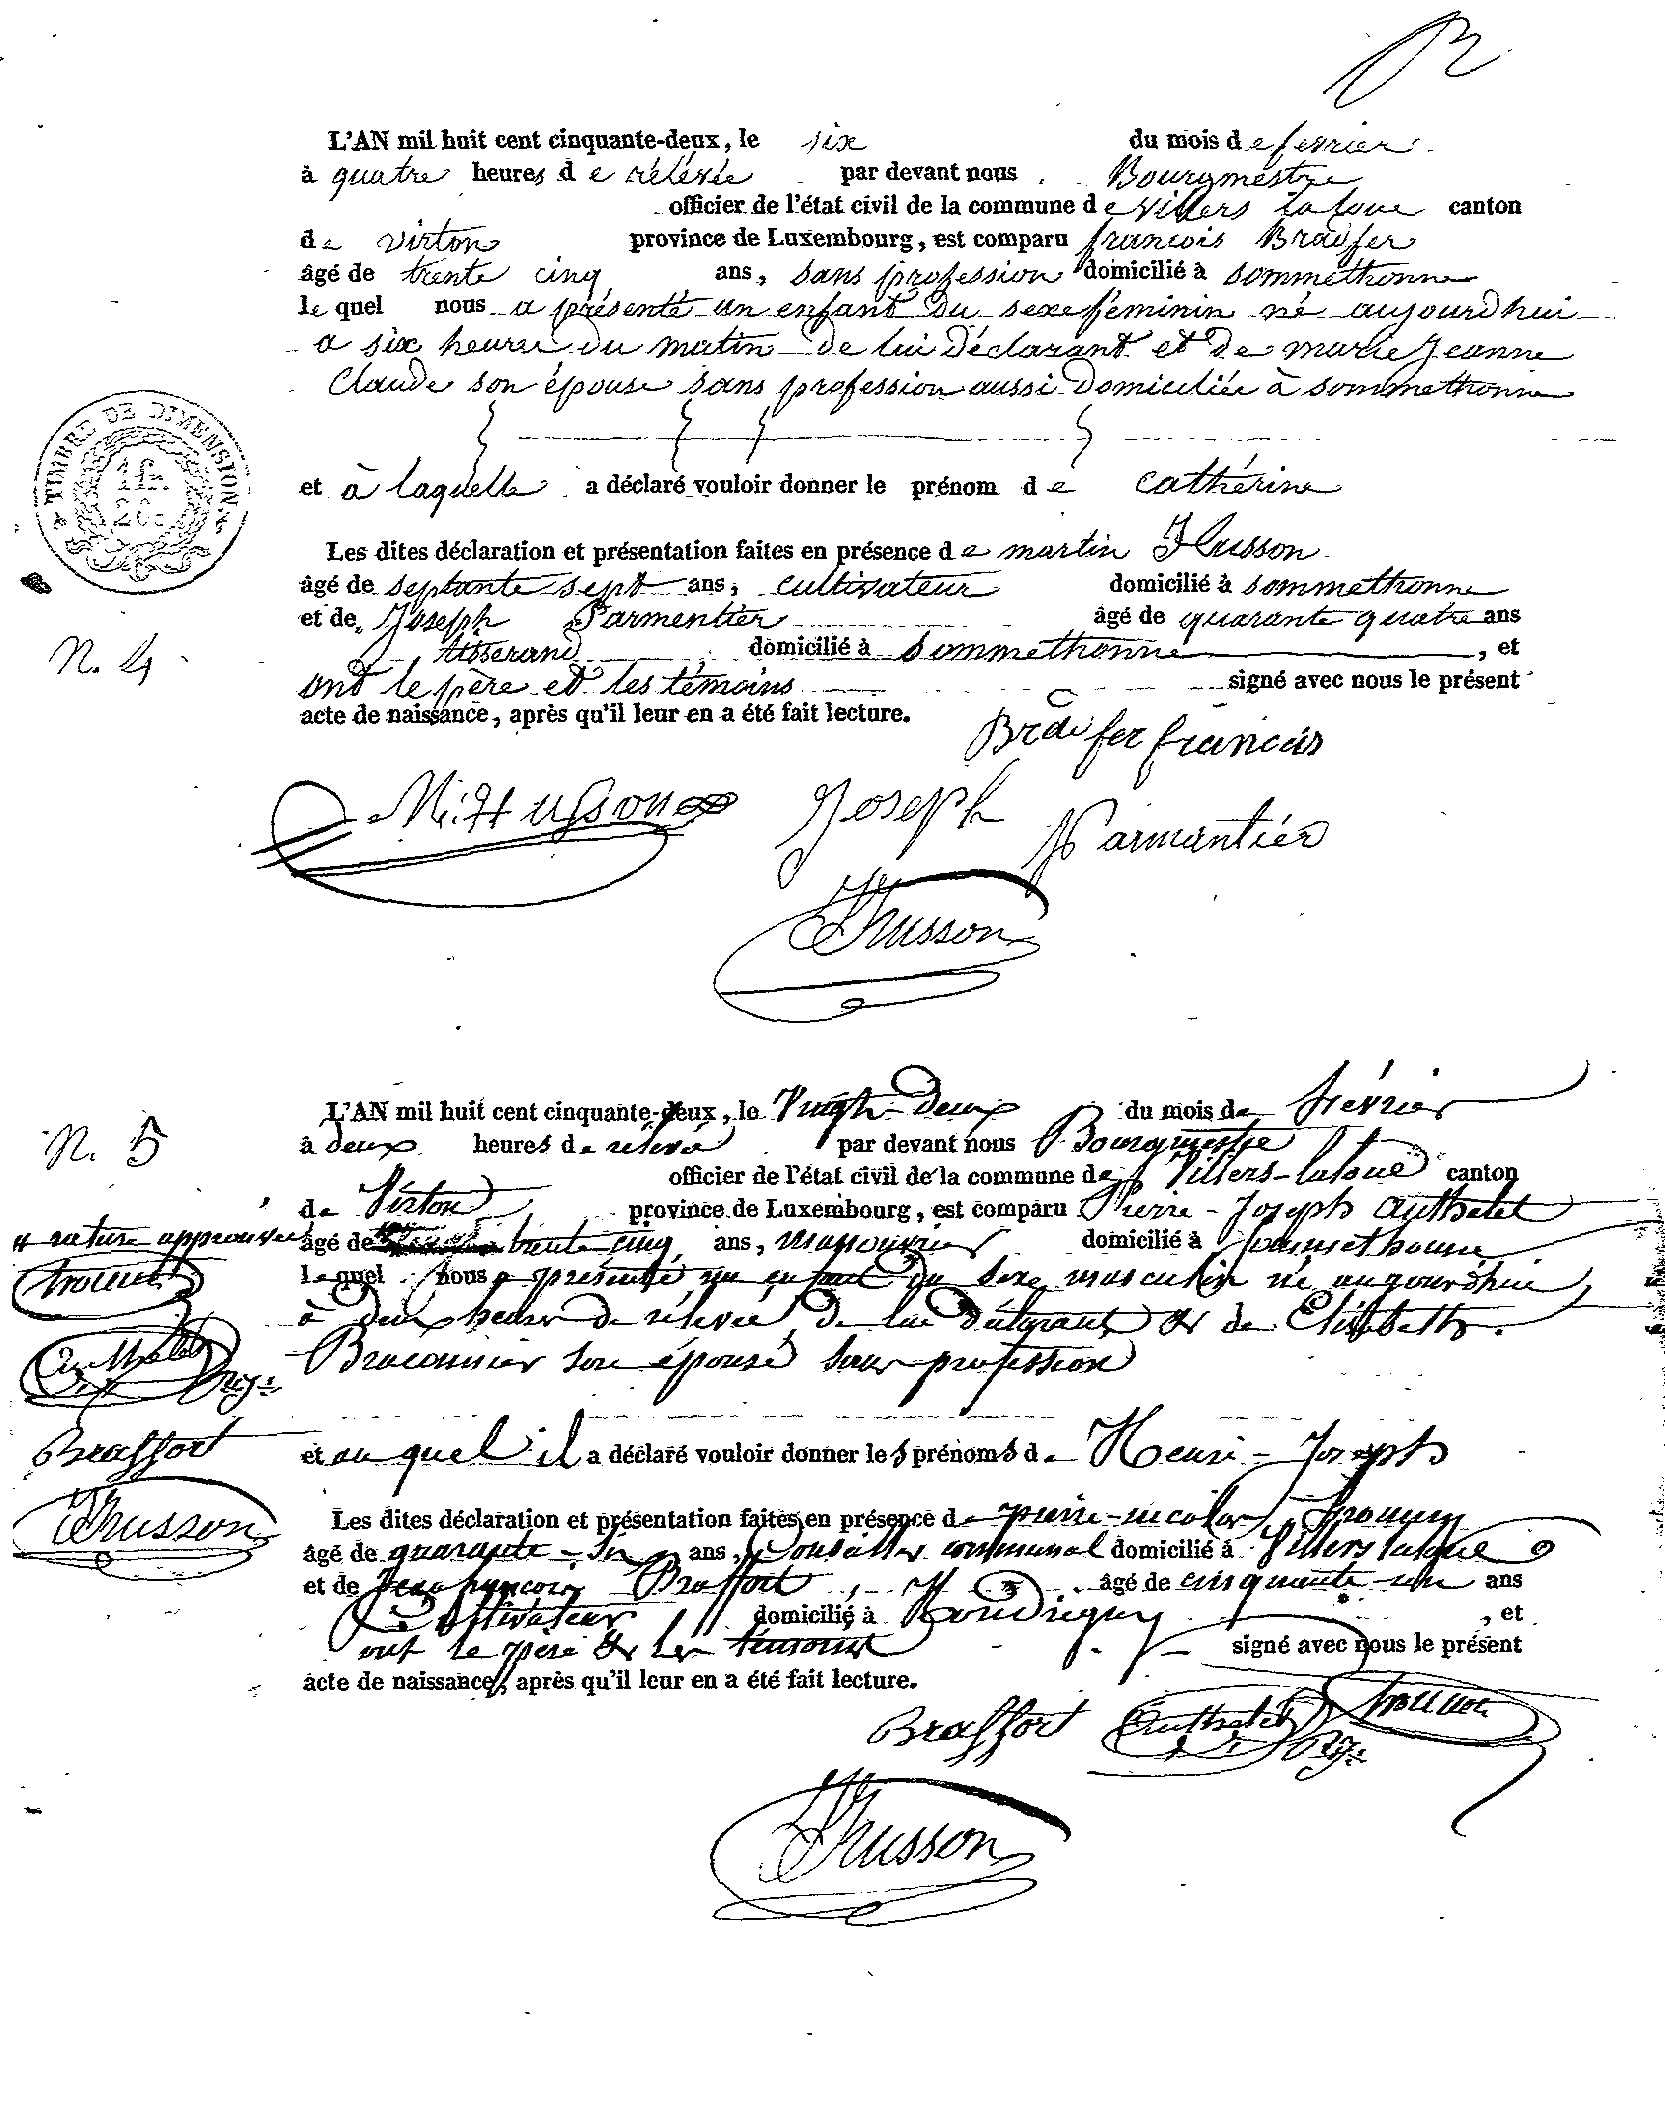 L'AN mil huit cent cinquante-deux, le six du mois de fevrier
à quatre heures de rélévée par devant nous Bourgmestre
officier de l'état civil de la commune de villers laloue canton
de virton province de Luxembourg, est comparu francois Bradfer
âgé de trente cinq ans, sans profession domicilié à sommethonne
le quel nous a présenté un enfant du sexe féminin né aujourdhui
a six heures du matin de lui Déclarant et de marie Jeanne
Claude son épouse sans profession aussi Domiciliée à sommethonne
TIMBRE DE DIMENSION
1 fr.
20 c
et à laquelle a déclaré vouloir donner le prénom de cathérine
Les dites déclaration et présentation faites en présence de martin Husson
âgé de septante sept ans, cultivateur domicilié à sommethonne
et de Joseph Parmentier âgé de quarante quatre ans
N. 4
tisserand domicilié à sommethonne, et
ont le père et les témoins signé avec nous le présent
acte de naissance, après qu'il leur en a été fait lecture.
Bradfer francois
M. Husson Joseph Parmantier
Husson
L'AN mil huit cent cinquante-deux, le Vingt-deux du mois de février
N. 5
à deux heures de rélevé par devant nous Bourgmestre
officier de l'état civil de la commune de Villers-laloue canton
de Virton province de Luxembourg, est comparu Pierre-Joseph Authelet
rature approuvée
âgé de trente cinq ans, manouvrier domicilié à Sommethonne
le quel nous a présenté un enfant du sexe masculin né aujourd'hui
à deux heures de rélevée de lui Déclarant & de Elisabeth
Braconnier son épouse sans profession
Authelet
Braffort
Husson
et au quel il a déclaré vouloir donner les prénoms de Henri-Joseph
Les dites déclaration et présentation faites en présence de pierre-nicolas
âgé de quarante-six ans, communal domicilié à Villers laloue
et de Jean françois Braffort, âgé de cinquante-un ans
Cultivateur domicilié à Houdrigny, et
ont le père & les témoins signé avec nous le présent
acte de naissance, après qu'il leur en a été fait lecture.
Braffort Authelet
Husson